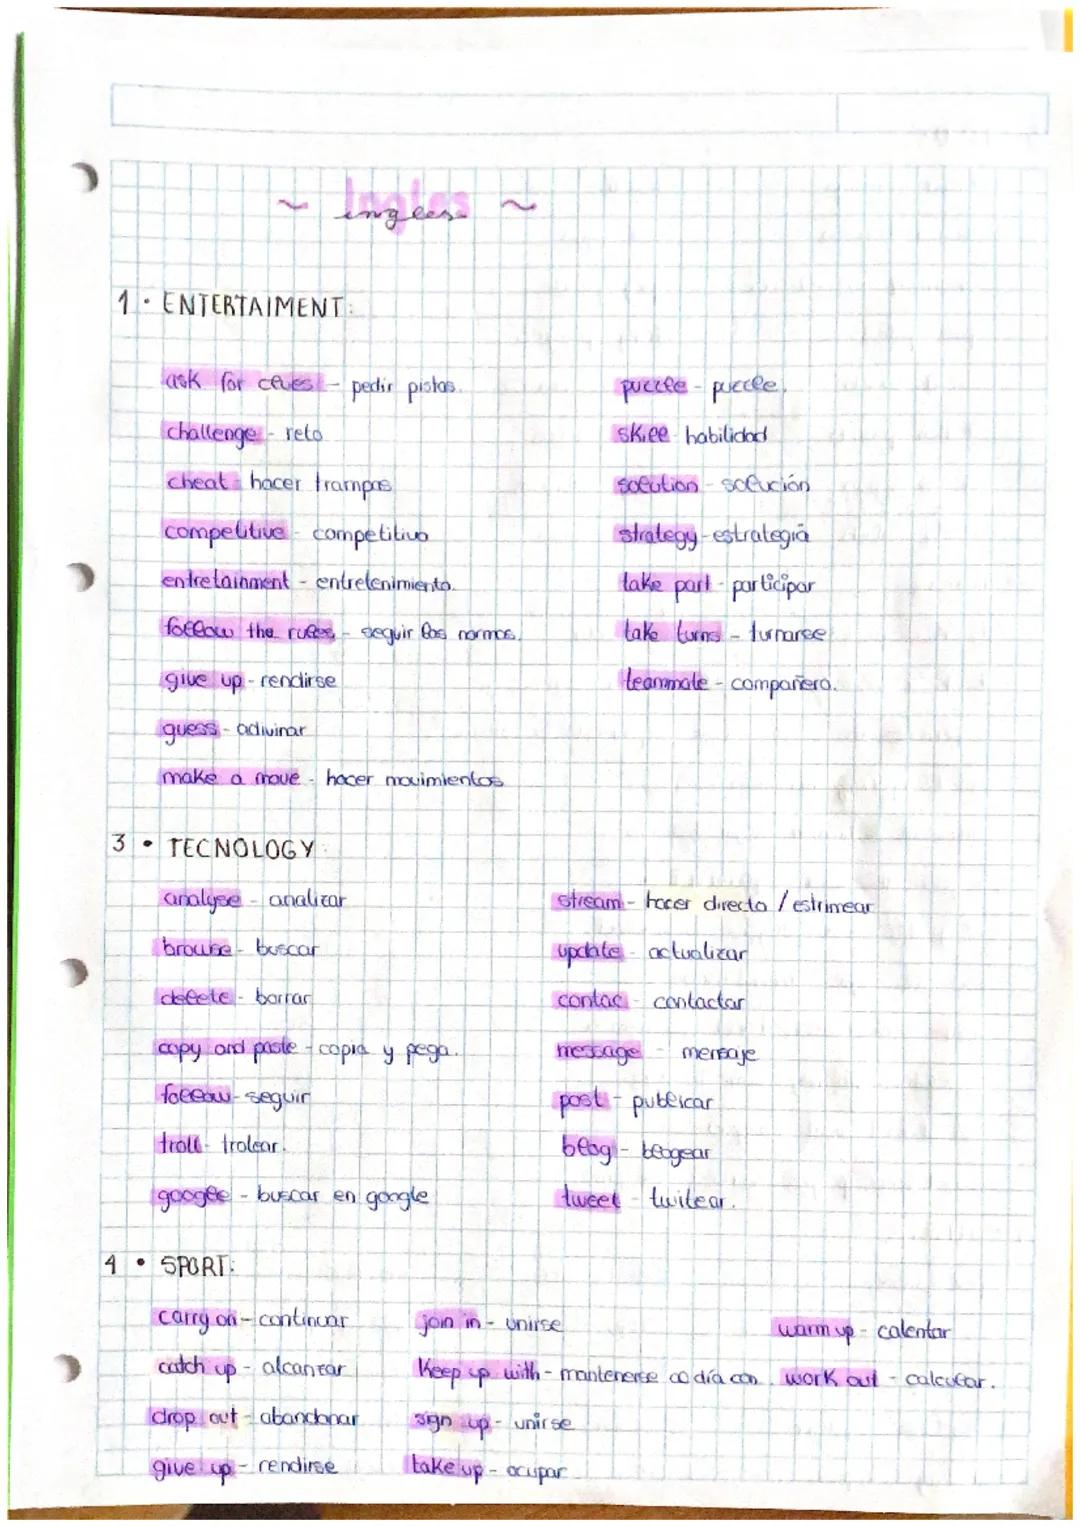 ~ Ingles ~
ingles
1. ENTERTAIMENT:
ask for clues - pedir pistas.
challenge - reto
cheat - hacer trampas
competitive - competitivo
entretainment - entretenimiento.
follow the rules - seguir las normas.
give up - rendirse
guess - adivinar
make a move - hacer movimientos
puzzle - puzzle.
skill - habilidad
solution - solución
strategy - estrategia
take part - participar
take turns - turnarse
teammate - compañero.
3 • TECNOLOGY:
analyse - analizar
browse - buscar
delete - borrar
copy and paste - copia y pega.
follow - seguir
troll - trolear.
google - buscar en google
stream - hacer directo / estrimear
update - actualizar
contac - contactar
message - mensaje
post - publicar
blog - blogear
tweet - twitear.
4 • SPORT:
carry on - continuar
catch up - alcanzar
drop out - abandonar
give up - rendirse
join in - unirse
keep up with - mantenerse al día con
sign up - unirse
take up - ocupar
warm up - calentar
work out - calcular.